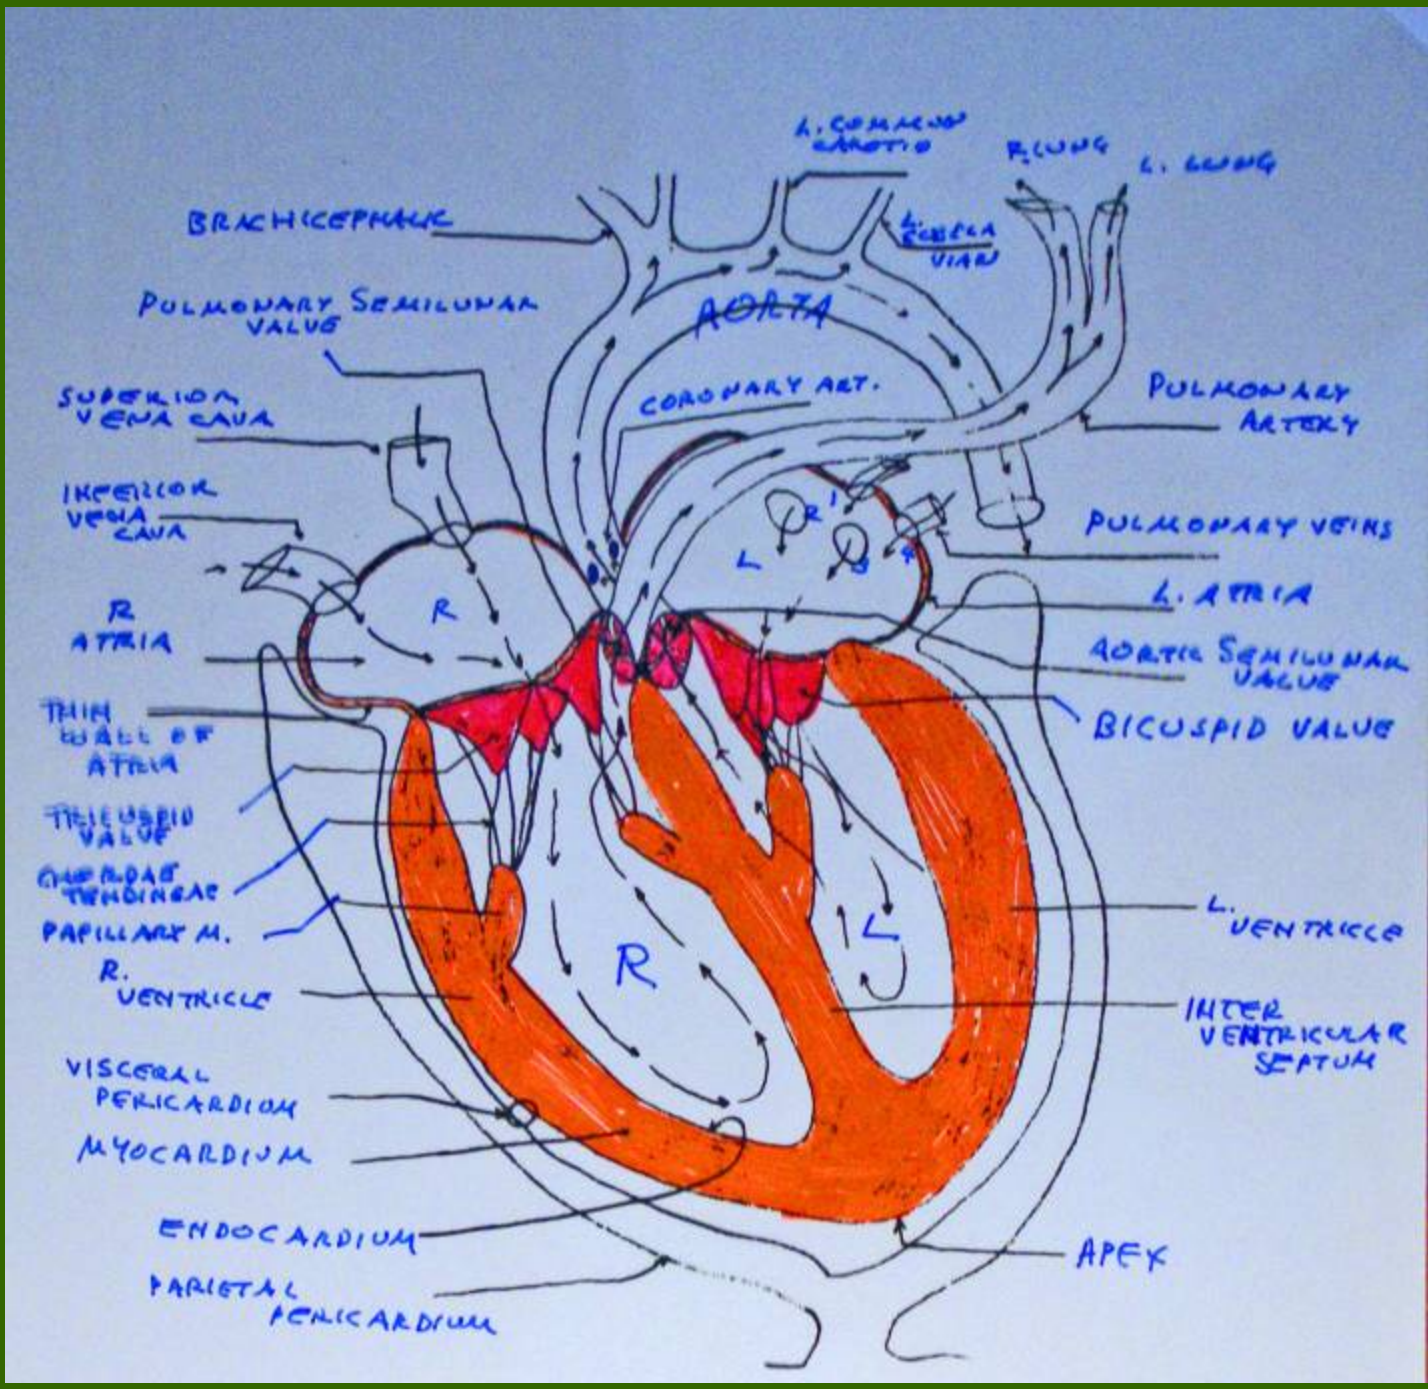 L. COMMON
CAROTID
R. LUNG
L. LUNG
BRACHICEPHALIC
L.
SUBCLA
VIAN
PULMONARY SEMILUNAR
VALUE
AORTA
SUPERIOR
VENA CAVA
CORONARY ART.
PULMONARY
ARTERY
INFERIOR
VENA
CAVA
PULMONARY VEINS
R
1
L
3
4
R
ATRIA
R
L. ATRIA
AORTIC SEMILUNAR
VALUE
THIN
WALL OF
ATRIA
BICUSPID VALUE
TRICUSPID
VALUE
CHERDAE
TENDINEAE
PAPILLARY M.
L.
VENTRICLE
R.
VENTRICLE
R
L
INTER
VENTRICULAR
SEPTUM
VISCERAL
PERICARDIUM
MYOCARDIUM
ENDOCARDIUM
APEX
PARIETAL
PERICARDIUM